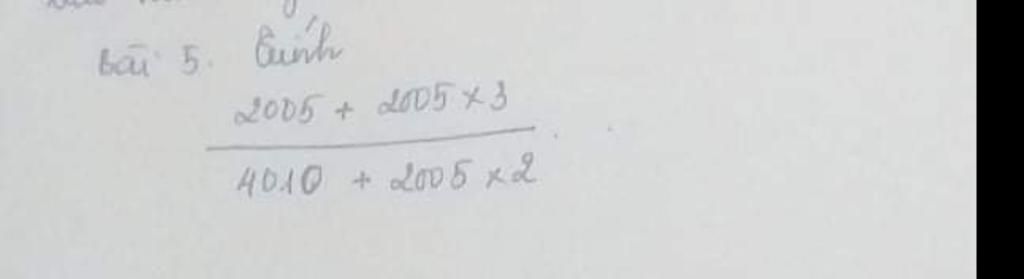 Bài 5. Tính
2005 + 2005 × 3
4010 + 2005 × 2